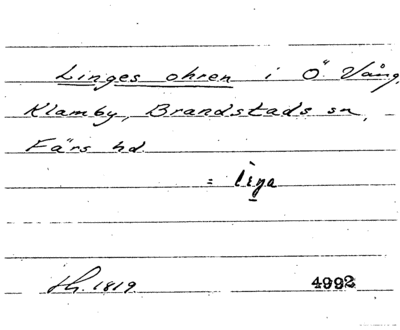 Linges ohren i Ö. Vång,
Klamby, Brandstads sn,
Färs hd
=
Sk. 1819 4992